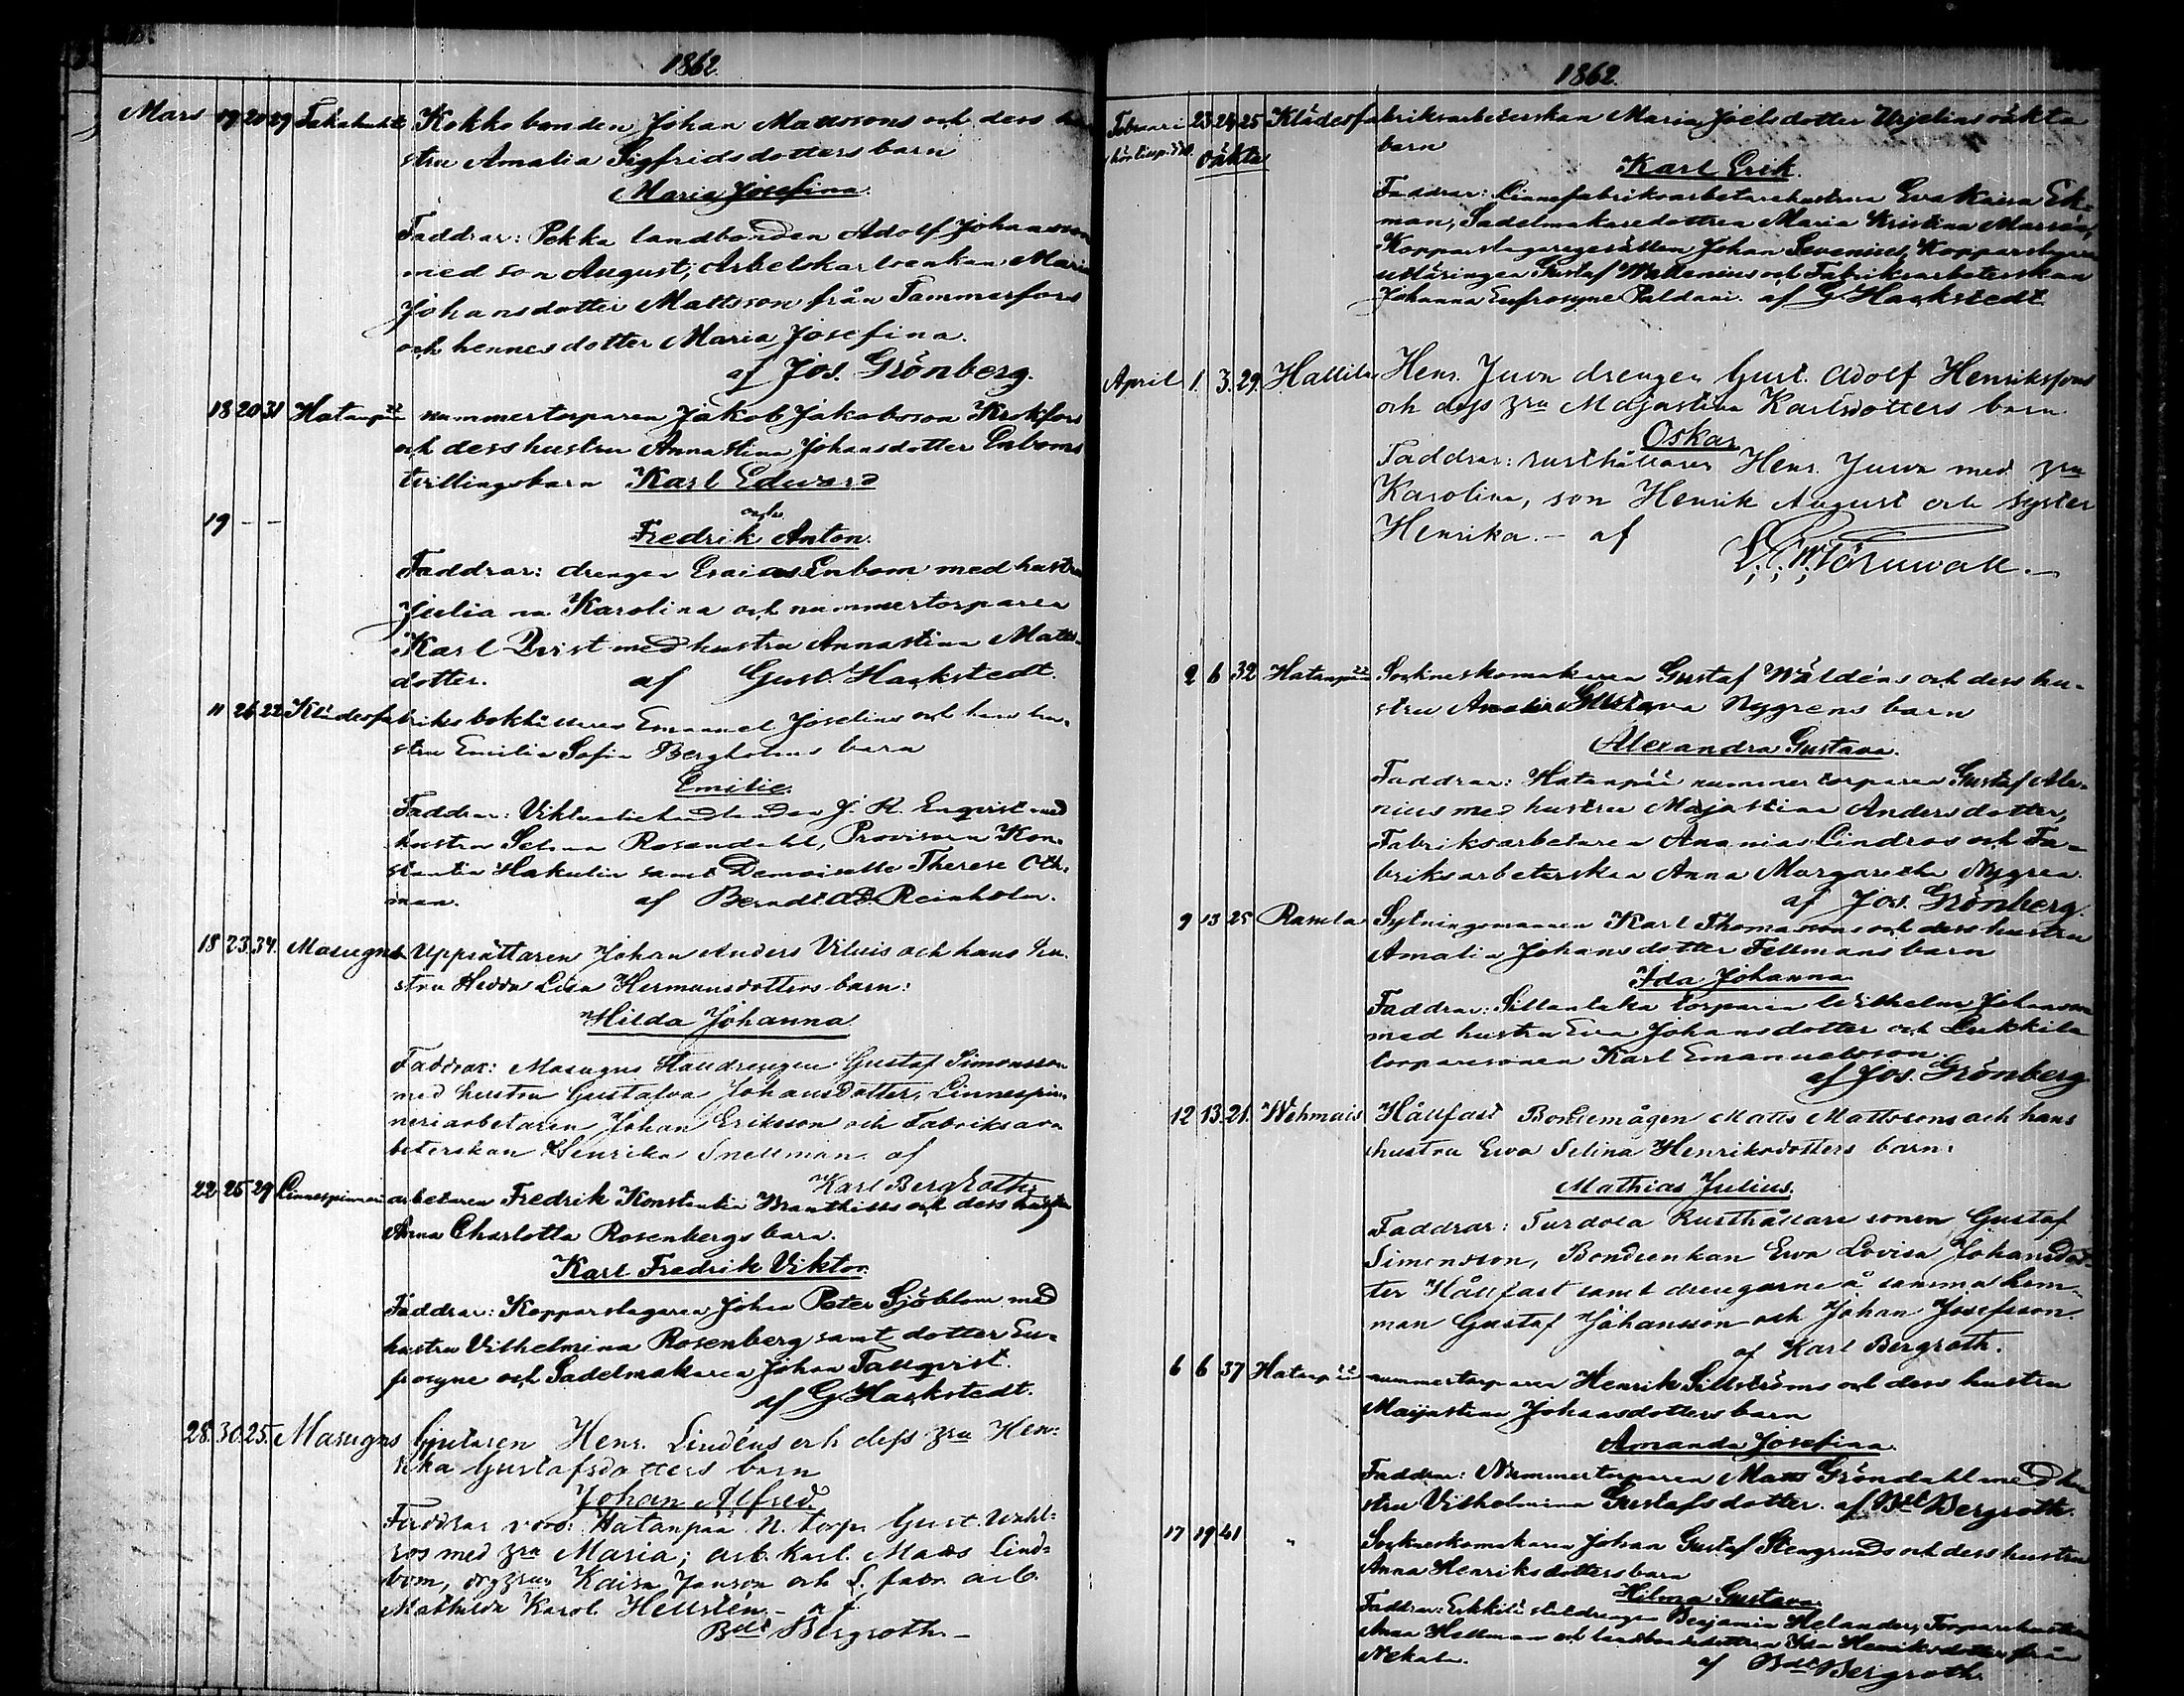 1862.
Mars 19 20 29 Takahuhti Kokko bonden Johan Mattssons och dess hu
stru Amalia Sigfridsdotters barn
Maria Josefina.
Faddrar: Pekka landbonden Adolf Johansson
med son August; Arbetskarlsenkan Maria
Johansdotter Mattsson från Tammerfors
och hennes dotter Maria Josefina.
af Jos. Grönberg.
18 20 31 Hatanpää nummertorparen Jakob Jakobsson Krokfors
och dess hustru Anna Stina Johansdotter Enboms
tvillingbarn Karl Edward
och
19 – – Fredrik Anton.
Faddrar: drengen Esaias Enbom med hustru
Julia Karolina och nummertorparen
Karl Qvist med hustru Annastina Matts-
dotter. af Gust. Hackstedt.
11 26 22 Klädesfabriks bokhållaren Emanuel Joselius och hans hu-
stru Emilia Sofia Bergholms barn
Emilie.
Faddrar: Viktualiehandlanden J. K. Enqvist med
hustru Selma Rosendahl, Provisorn Kon-
stantin Hakulin samt Demoiselle Therese Öh-
man. af Berndt Ad. Reinholm.
18 23 34. Masugns Uppsättaren Johan Anders Viluis och hans hu-
stru Hedda Lisa Hermansdotters barn:
Hilda Johanna.
Faddrar: Masugns Stalldrengen Gustaf Simonsson
med hustru Gustafva Johansdotter, Linnespin-
neriarbetaren Johan Eriksson och Fabriksar-
beterskan Henrika Snellman. af
Karl Bergroth.
22 25 29 Linnespinneri arbetaren Fredrik Konstantin och dess hustru
Anna Charlotta Rosenbergs barn.
Karl Fredrik Viktor.
Faddrar: Kopparslagaren Johan Peter Sjöblom med
hustru Vilhelmina Rosenberg samt dotter Eu-
frosyne och Sadelmakaren Johan Tallqvist.
af G. Hackstedt.
28. 30. 25. Masugns Gjutaren Henr. Lindéns och dess hru Hen-
rika Gustafsdotters barn
Johan Alfred
Faddrar voro: Hatanpää N. torp. Gust. Wahl-
ros med hru Maria; arb. karl. Mats Lind-
bom, Kaisa Janson och L. fabr. arb.
Mathilda Karol. Hellstén. – af
Bdt Bergroth. –
1862.
Februari 23 24 25 Klädesfabriksarbeterskan Maria Joelsdotter Urjelins oäkta
oäkta barn
Karl Erik.
Faddrar: Linnefabriksarbetarehustrun Eva Kaisa Ek-
man, Sadelmakaredottren Maria Kristina
Kopparslagaregesällen Johan Sevenius, Kopparslagare
utläringen Gustaf Wallenius och Fabriksarbeterskan
Johanna Eufrosyne Paldani. af G. Hackstedt.
April 1. 3. 29. Hallila Henr. Juva drengen Gust. Adolf Henrikssons
och dess hru Majastina Karlsdotters barn
Oskar
Faddrar: rusthållaren Henr. Juva med hru
Karolina, son Henrik August och syster
Henrika. – af
2 6 32 Hatanpää Sockneskomakaren Gustaf Wäldéns och dess hu-
stru Amalia Gustava Nygrens barn
Alexandra Gustava.
Faddrar: Hatanpää nummertorparen Gustaf Ale-
nius med hustru Majastina Andersdotter,
Fabriksarbetaren Ananias Lindros och Fa-
briksarbeterskan Anna Margaretha Nygren
af Jos. Grönberg.
9 13 25 Rantla Sytningsmannen Karl Thomassons och dess hustru
Amalia Johansdotter Fellmans barn
Ida Johanna.
Faddrar: Sillantaka torparen Wilhelm Johansson
med hustru Eva Johansdotter och Lukkila
torparesonen Karl Emanuelsson.
af Jos. Grönberg
12 13. 21. Wehmais Hållfast Bondemågen Matts Mattssons och hans
hustru Ewa Selina Henriksdotters barn:
Mathias Julius.
Faddrar: Turdola Rusthållare sonen Gustaf
Simonsson, Bondeenkan Ewa Lovisa Johansdot-
ter Hållfast samt drengarne å samma hem-
man Gustaf Johansson och Johan Josefsson.
af Karl Bergroth.
6 6 37 Hatanpää nummertorparen Henrik Sillströms och dess hustru
Majastina Johansdotters barn
Amanda Josefina.
Faddrar: Nummertorparen Matts Gröndahl med hu
stru Vilhelmina Gustafsdotter. af Bdt Bergroth.
17 19 41 " Sockneskomakaren Johan Gustaf Stengrunds och dess hustru
Anna Henriksdotters barn
Hilma Gustava.
Faddrar: Erkkilä stuldrengen Benjamin Helander, Torparehustrun
Anna Hellman och landbondedottren Ida Henriksdotter från
Nekala. af Bdt Bergroth.